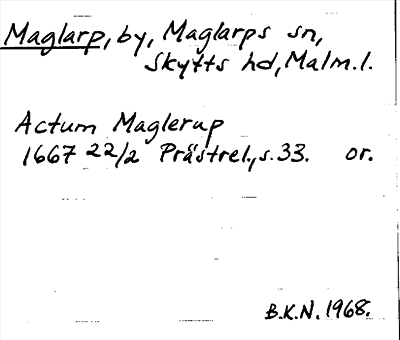 Maglarp, by, Maglarps sn,
Skytts hd, Malm.l.
Actum Maglerup
1667 22/2 Prästrel., s. 33. or.
B.K.N. 1968.